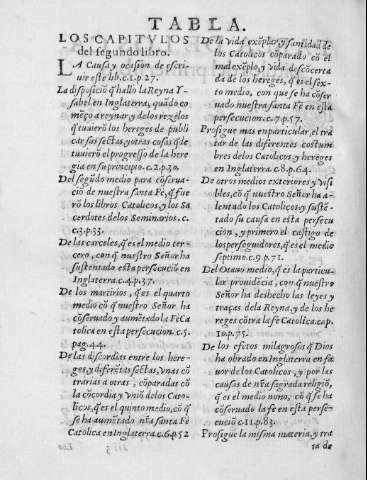 TABLA.
LOS CAPITVLOS
del segundo libro.
LA Causa y ocasion de escri-
uir este lib.c.1.p.27.
La disposiciõ q̃ hallo la Reyna Y-
sabel en Inglaterra, quãdo co
mẽço a reynar, y de los rezelos
q̃ tuuierõ los hereges de publi
car sus sectas, y otras cosas q̃ de
tuuierõ el progresso de la here
gia en su principio. c.2.p.30.
Del segũdo medio para cõserua-
ciõ de nuestra santa Fè, q̃ fue
rõ los libros Catolicos, y los Sa
cerdotes de los Seminarios. c.
c.3.p.33.
De las carceles, q̃ es el medio ter-
cero, con q̃ nuestro Señor ha
sustentado esta persecuciõ en
Inglaterra.c.4.p.37.
De los martirios, q̃ es el quarto
medio cõ q̃ nuestro Señor ha
cõseruado y aumẽtado la Fè Ca
tolica en esta persecucion.c.5.
pag.44.
De las discordias entre los here-
ges, y diferẽtes sectas, vnas cõ
trarias a otras, cõparadas cõ
la cõcordia y vniõ de los Cato-
licos, q̃ es el quinto medio, cõ q̃
se ha aumẽtado nr̃a santa Fè
Catolica en Inglaterra.c.6.p.52
De la vida exẽplar y santidad de
los Catolicos cõparado cõ el
mal exẽplo, y vida descõcerta
da de los hereges, q̃ es el sex-
to medio, con que se ha cõser
uado nuestra santa Fè en esta
persecucion.c.7.p.57.
Prosigue mas en particular, el tra
tar de las diferentes costum-
bres de los Catolicos y hereges
en Inglaterra. c.8.p.64.
De otros medios exteriores y visi
bles, cõ q̃ nuestro Señor ha a-
lentado los Catolicos, y susté-
tado su causa en esta persecu
cion, y primero el castigo de
los perseguidores, q̃ es el medio
septimo.c.9.p.71.
Del Otauo medio, q̃ es la particu-
lar prouidẽcia, con q̃ nuestro
Señor ha deshecho las leyes y
traças de la Reyna, y de los he
reges cõtra la fe Catolica.cap.
10.p.75.
De los efetos milagrosos q̃ Dios
ha obrado en Inglaterra en fa
uor de los Catolicos, y por las
causas de nr̃a sagrada religiõ,
q̃ es el medio nono, cõ q̃ se ha
cõseruado la fe en esta perse-
cuciõ c.11.p.83.
Prosigue la misma materia, y tra
ta de